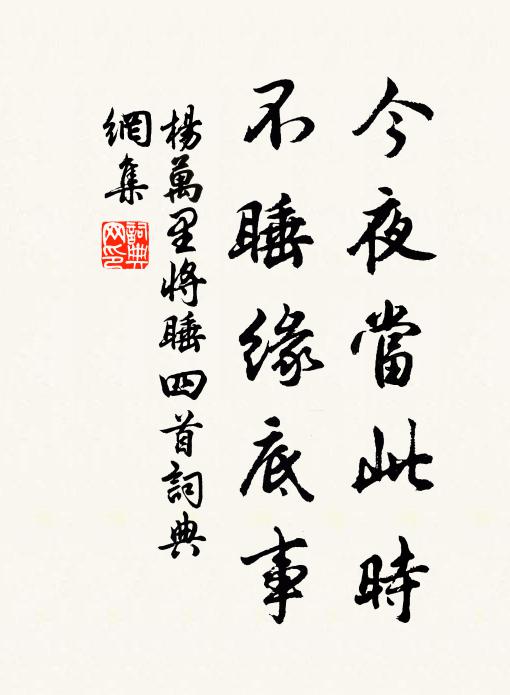 今夜當此時
不睡緣底事
楊萬里將睡四首詞典
網集
詞典
网印